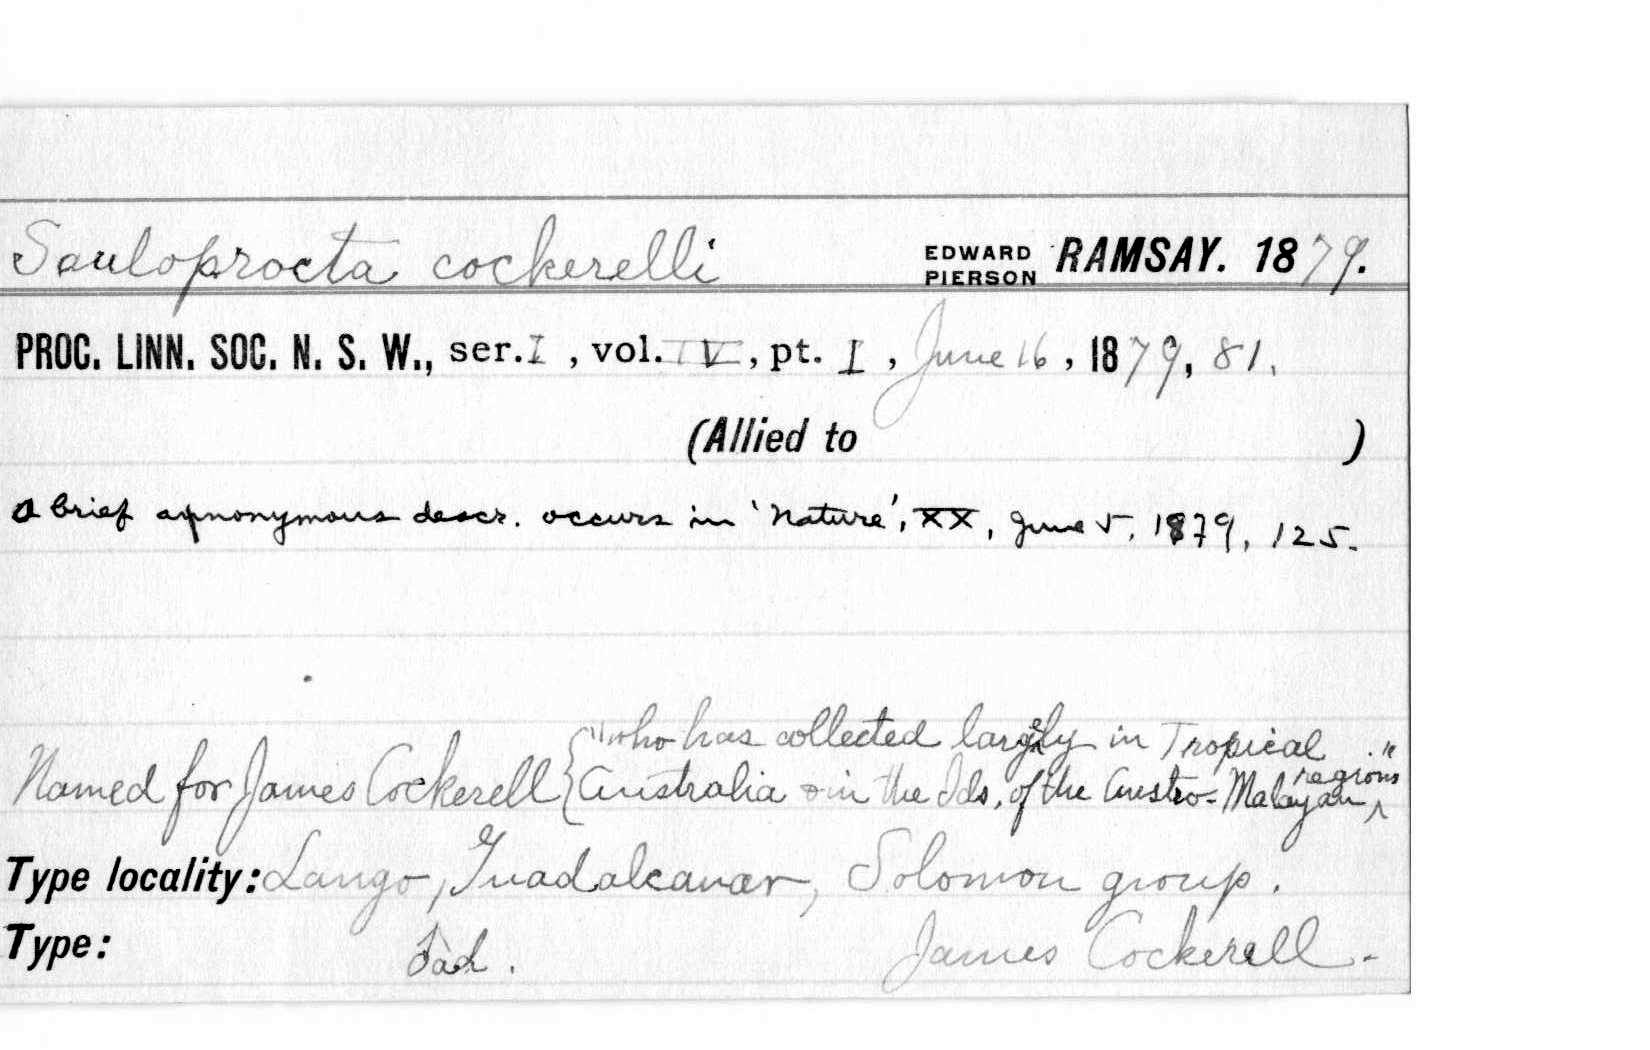 Sauloprocta cockerelli EDWARD PIERSON RAMSAY. 1879.
PROC. LINN. SOC. N. S. W., ser. I, vol. IV, pt. I, June 16, 1879, 81.
(Allied to )
A brief anonymous descr. occurs in 'Nature', XX, June 5, 1879, 125.
Named for James Cockerell { "who has collected largely in Tropical
Australia & in the Ids. of the Austro-Malayan regions."
Type locality: Lango, Guadalcanar, Solomon group.
Type: ad. James Cockerell.